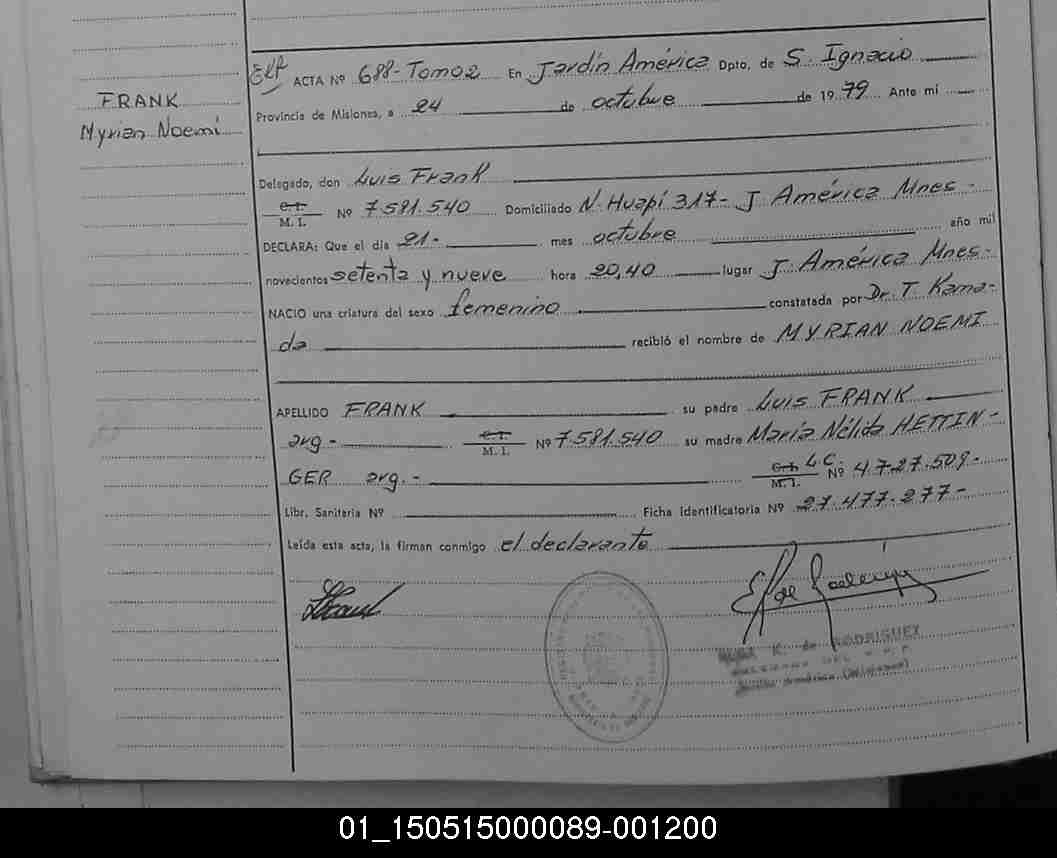 FRANK
Myrian Noemi
ACTA Nº 688-Tomo 2 En Jardín América Dpto, de S. Ignacio
Provincia de Misiones, a 24 de octubre de 1979 Ante mí
Delegado, don Luis Frank
C. I.
M. I. Nº 7.581.540 Domiciliado N. Huapí 317- J América Mnes-
DECLARA: Que el día 21- mes octubre año mil
novecientos setenta y nueve hora 20,40 lugar J América Mnes-
NACIO una criatura del sexo femenino constatada por Dr. T. Kama-
da recibló el nombre de MYRIAN NOEMI
APELLIDO FRANK su padre Luis FRANK
arg- C. I.
M. I. Nº 7.581.540 su madre María Nélida HETTIN-
GER arg.- C. I. L.C.
M. I. Nº 4.727.509-
Libr. Sanitaria Nº Ficha identificatoria Nº 27.477.277-
Leída esta acta, la firman conmigo el declarante
K. de RODRIGUEZ
01_150515000089-001200